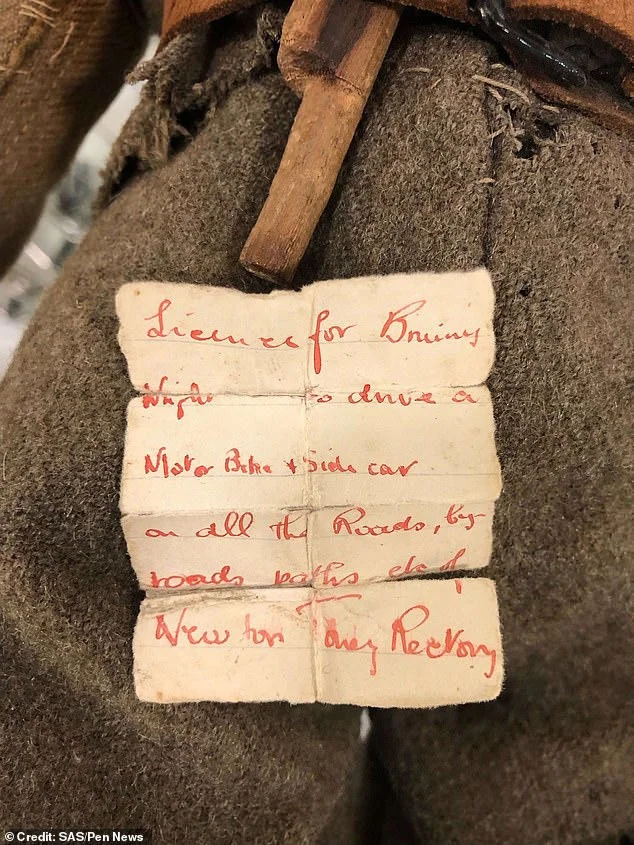 Licence for Bruins
Wight to drive a
Motor Bike & Side car
on all the Roads, by-
roads paths etc of
Newton Toney Rectory
© Credit: SAS/Pen News